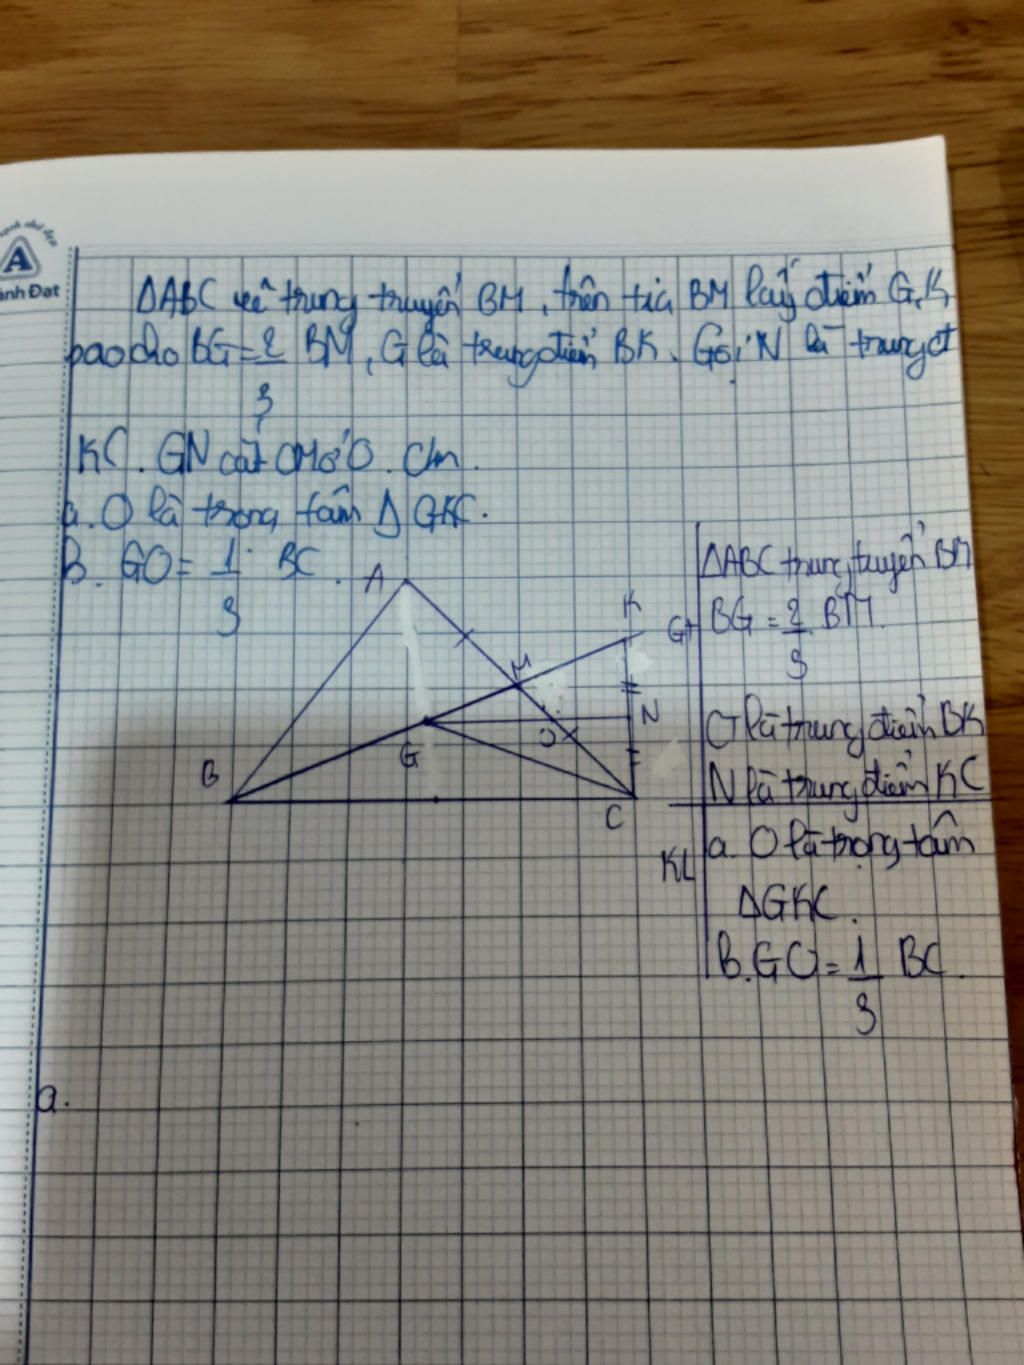 A
ành Đạt
ΔABC vẽ trung truyến BM, trên tia BM lấy điểm G, K
sao cho BG = 2/3 BM, G là trung điểm BK. Gọi N là trung đ
KC. GN cắt CM ở O. Cm.
a. O là trọng tâm Δ GKC.
B. GO = 1/3 BC.
A
K
M
N
G
O
B
C
GT
ΔABC trung tuyến BM
BG = 2/3 BM.
G là trung điểm BK
N là trung điểm KC
KL
a. O là trọng tâm
ΔGKC.
B. GO = 1/3 BC.
a.